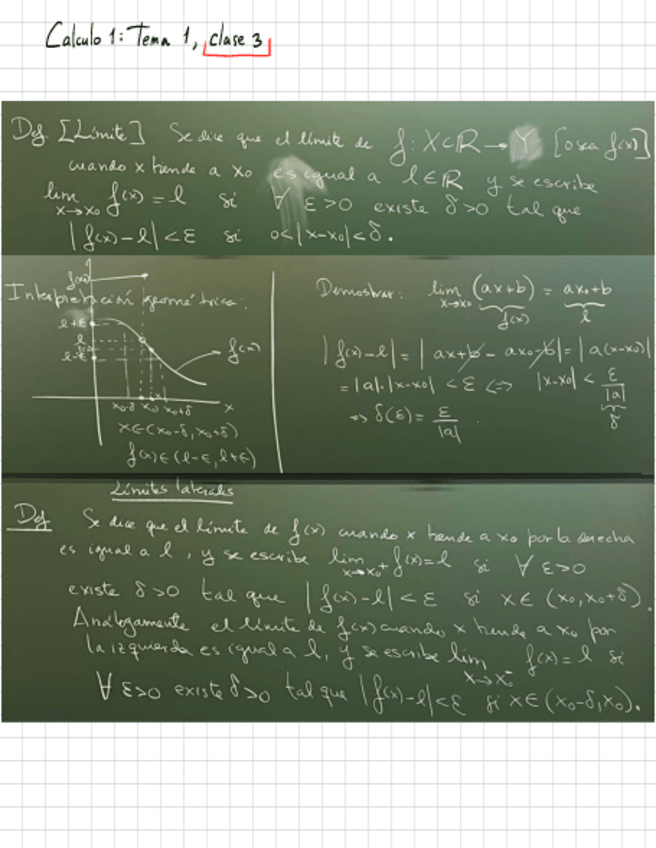 Calculo 1: Tema 1, clase 3
Def. [Límite] Se dice que el límite de f: X⊂ℝ → Y [o sea f(x)]
cuando x tiende a x₀ es igual a l∈ℝ y se escribe
lim x→x₀ f(x) = l si ∀ ε>0 existe δ>0 tal que
|f(x)-l| < ε si 0<|x-x₀|<δ.
Interpretación geométrica:
f(x₀)
l+ε
l
l-ε
f(x)
x₀-δ x₀ x₀+δ x
x∈(x₀-δ, x₀+δ)
f(x)∈(l-ε, l+ε)
Demostrar: lim x→x₀ (ax+b) = ax₀+b
f(x) l
|f(x)-l| = |ax+b - ax₀-b| = |a(x-x₀)|
= |a|·|x-x₀| < ε ⇔ |x-x₀| < ε/|a|
δ
⇒ δ(ε) = ε/|a|.
Límites laterales
Def Se dice que el límite de f(x) cuando x tiende a x₀ por la derecha
es igual a l, y se escribe lim x→x₀⁺ f(x)=l si ∀ ε>0
existe δ>0 tal que |f(x)-l| < ε si x∈(x₀, x₀+δ).
Análogamente el límite de f(x) cuando x tiende a x₀ por
la izquierda es igual a l, y se escribe lim x→x₀⁻ f(x)=l si
∀ ε>0 existe δ>0 tal que |f(x)-l|<ε si x∈(x₀-δ, x₀).